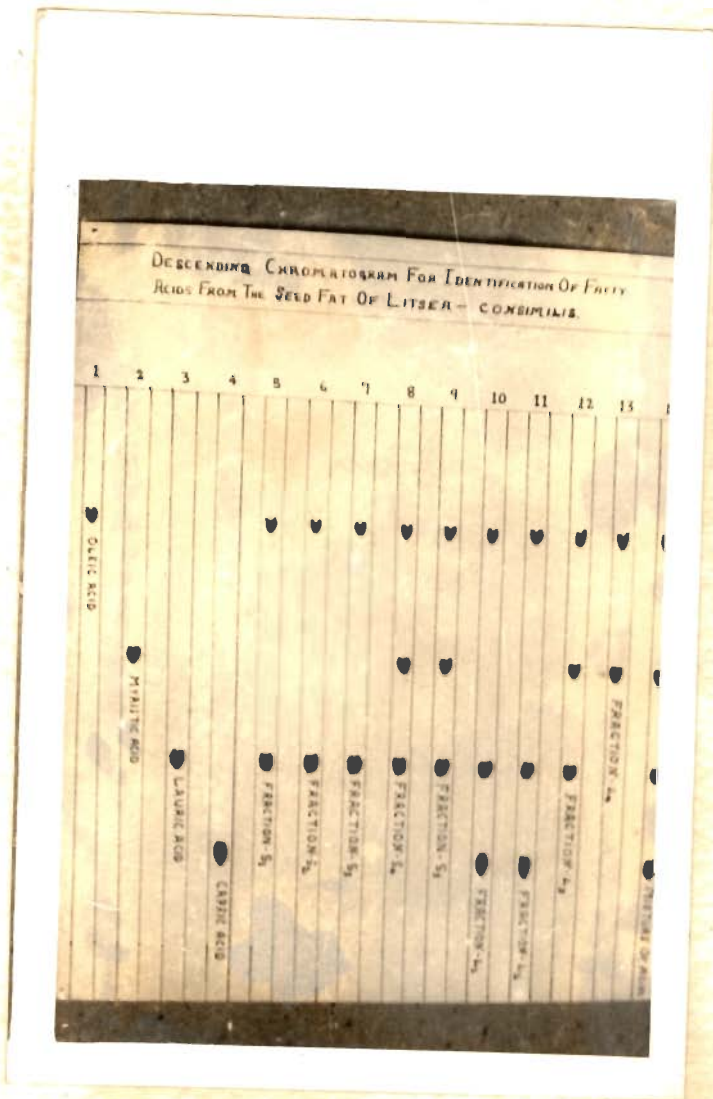 DESCENDING CHROMATOGRAM FOR IDENTIFICATION OF FATTY
ACIDS FROM THE SEED FAT OF LITSEA - CONSIMILIS.
1 2 3 4 5 6 7 8 9 10 11 12 13
OLEIC ACID
MYRISTIC ACID
LAURIC ACID
CAPRIC ACID
FRACTION-S₁
FRACTION-S₂
FRACTION-S₃
FRACTION-S₄
FRACTION-S₅
FRACTION-L₁
FRACTION-L₂
FRACTION-L₃
FRACTION-L₄
MIXTURE OF